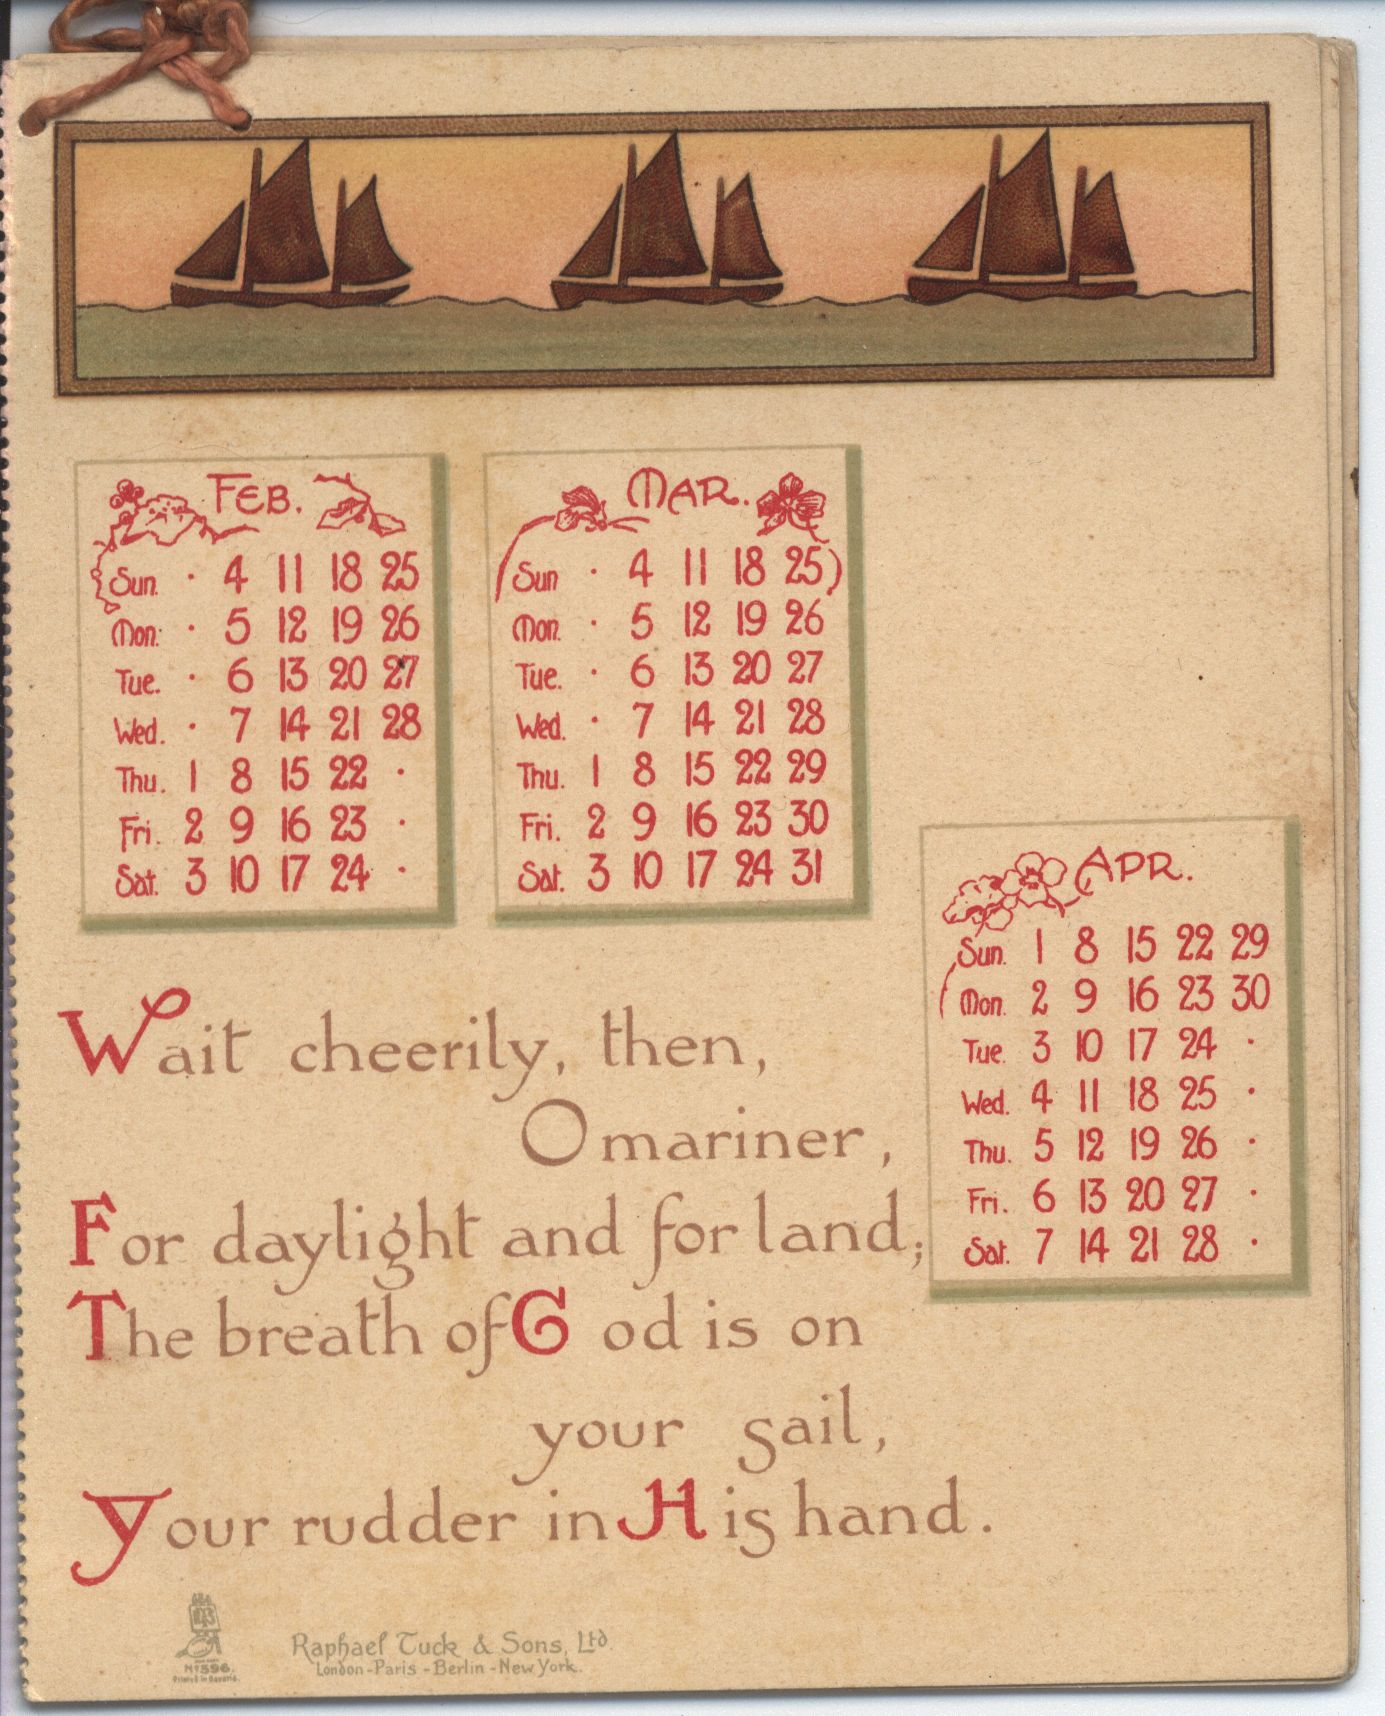 FEB.
Sun. · 4 11 18 25
Mon. · 5 12 19 26
Tue. · 6 13 20 27
Wed. · 7 14 21 28
Thu. 1 8 15 22 ·
Fri. 2 9 16 23 ·
Sat. 3 10 17 24 ·
MAR.
Sun · 4 11 18 25
Mon. · 5 12 19 26
Tue. · 6 13 20 27
Wed. · 7 14 21 28
Thu. 1 8 15 22 29
Fri. 2 9 16 23 30
Sat. 3 10 17 24 31
APR.
Sun. 1 8 15 22 29
Mon. 2 9 16 23 30
Tue. 3 10 17 24 ·
Wed. 4 11 18 25 ·
Thu. 5 12 19 26 ·
Fri. 6 13 20 27 ·
Sat. 7 14 21 28 ·
Wait cheerily, then,
O mariner,
For daylight and for land;
The breath of God is on
your sail,
Your rudder in His hand.
Nº 596.
Printed in Bavaria.
Raphael Tuck & Sons, Ltd.
London - Paris - Berlin - New York.